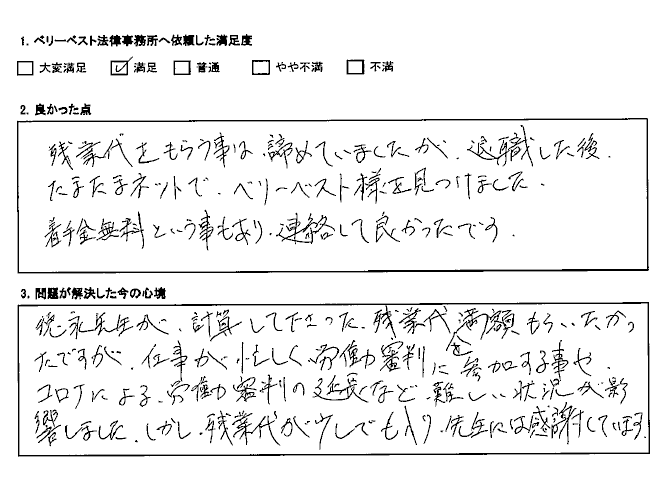 1. ベリーベスト法律事務所へ依頼した満足度
□ 大変満足 ☑ 満足 □ 普通 □ やや不満 □ 不満
2. 良かった点
残業代をもらう事は、諦めていましたが、退職した後、
たまたまネットで、ベリーベスト様を見つけました。
着手金無料という事もあり、連絡して良かったです。
3. 問題が解決した今の心境
先生が、計算して下さった、残業代を満額もらいたかっ
たですが、仕事が忙しく、労働審判に参加する事や、
コロナによる、労働審判の延長など、難しい状況が影
響しました。しかし、残業代が少しでも入り、先生には感謝しています。